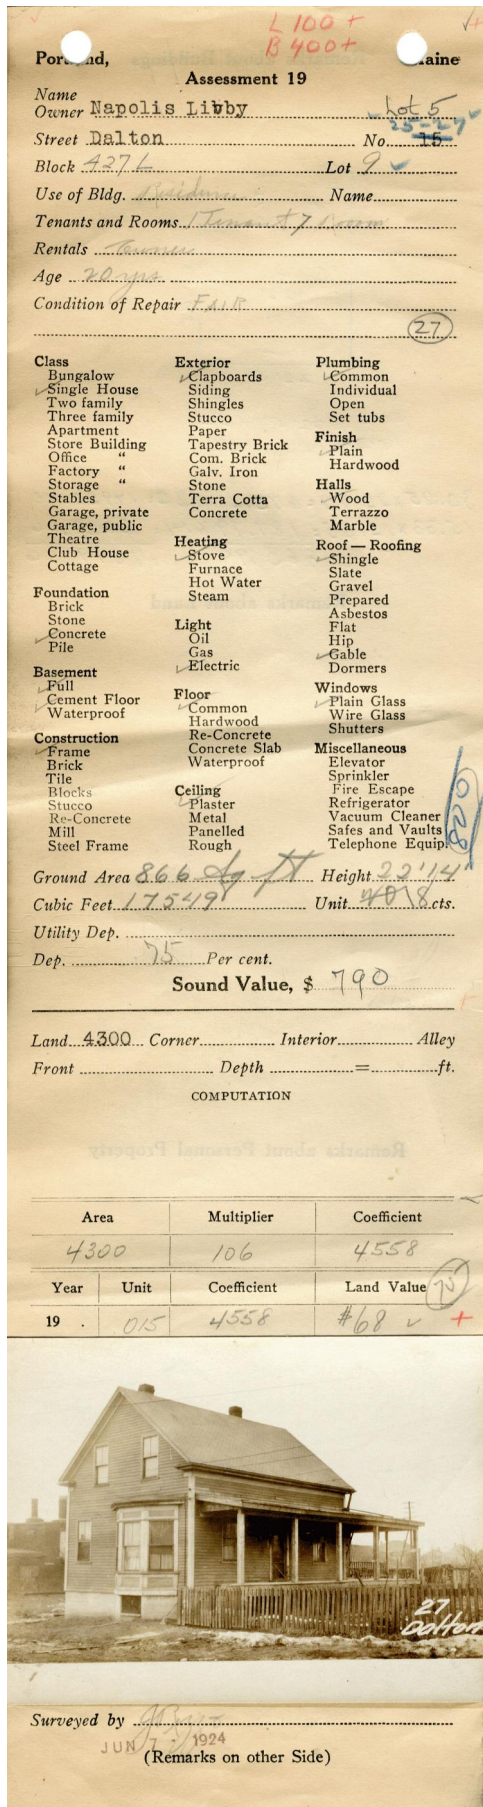 L 100 +
B 400 +
Portland, Maine
Assessment 19
Name
Owner Napolis Libby Lot 5
25-27
Street Dalton No. 15
Block 427L Lot 9
Use of Bldg. Residence Name
Tenants and Rooms 1 Tenant 7 Room
Rentals Owner
Age 20 yrs
Condition of Repair FAIR
27
Class
Bungalow
Single House
Two family
Three family
Apartment
Store Building
Office "
Factory "
Storage "
Stables
Garage, private
Garage, public
Theatre
Club House
Cottage
Foundation
Brick
Stone
Concrete
Pile
Basement
Full
Cement Floor
Waterproof
Construction
Frame
Brick
Tile
Blocks
Stucco
Re-Concrete
Mill
Steel Frame
Exterior
Clapboards
Siding
Shingles
Stucco
Paper
Tapestry Brick
Com. Brick
Galv. Iron
Stone
Terra Cotta
Concrete
Heating
Stove
Furnace
Hot Water
Steam
Light
Oil
Gas
Electric
Floor
Common
Hardwood
Re-Concrete
Concrete Slab
Waterproof
Ceiling
Plaster
Metal
Panelled
Rough
Plumbing
Common
Individual
Open
Set tubs
Finish
Plain
Hardwood
Halls
Wood
Terrazzo
Marble
Roof — Roofing
Shingle
Slate
Gravel
Prepared
Asbestos
Flat
Hip
Gable
Dormers
Windows
Plain Glass
Wire Glass
Shutters
Miscellaneous
Elevator
Sprinkler
Fire Escape
Refrigerator
Vacuum Cleaner
Safes and Vaults
Telephone Equip.
850
Ground Area 866 sq ft Height 22' 14"
Cubic Feet 17549 Unit 18 cts.
Utility Dep.
Dep. 75 Per cent.
Sound Value, $ 790
Land 4300 Corner Interior Alley
Front Depth = ft.
COMPUTATION
Area Multiplier Coefficient
4300 106 4558
Year Unit Coefficient Land Value 75
19 . 015 4558 #68 +
27
Dalton
Surveyed by
JUN 7 - 1924
(Remarks on other Side)